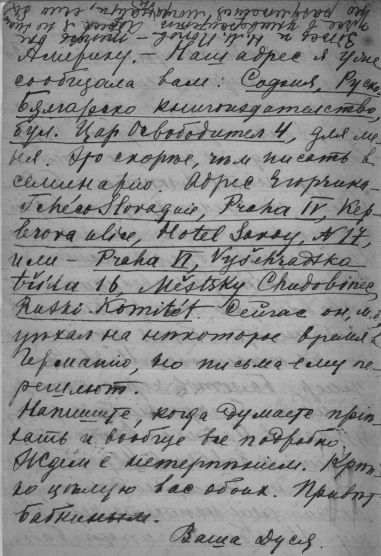 Америку. – Наш адрес я уже
сообщала вам: София, Руско-
Българско книгоиздателство,
бул. Цар Освободител 4, для ме-
ня. Это скорѣе, чѣм писать в
семинарію. Адрес Егорчика –
Tchéco Slovaquie, Praha IV, Kep-
lerova ulice, Hotel Savoy, № 17,
или – Praha VI, Vyšehradska
třída 16, Městsky Chudobinec,
Ruski Komitét. Сейчас он
уѣхал на нѣкоторое время в
Германію, но письма ему пе-
решлют.
Напишите, когда думаете пріѣ-
хать и вообще все подробно.
Ждем с нетерпѣніем. Крѣп-
ко цѣлую вас обоих. Привѣт
Бабкиным.
Ваша Дуся.